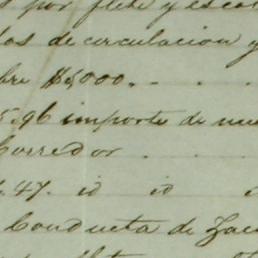 por flete y
de circulacion y
bre $5000. . . .
5.96 importe de
Corredor . . . .
.47. id id
Conducta de Zac